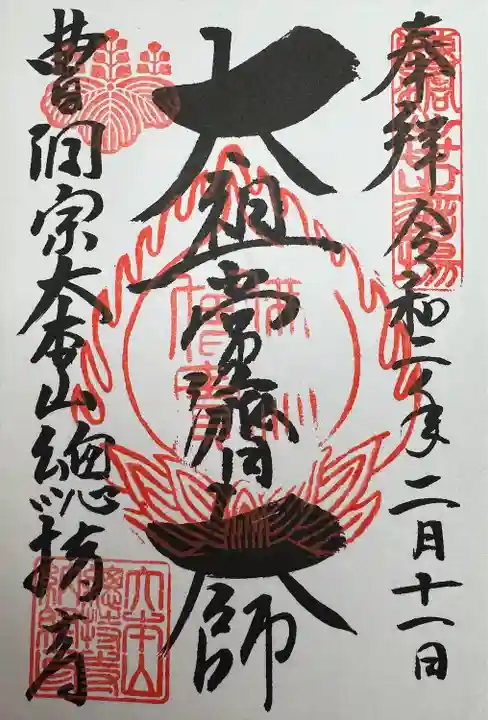 奉拝 令和二年二月十一日
大祖常済大師
曹洞宗大本山總持寺
大本山
總持寺